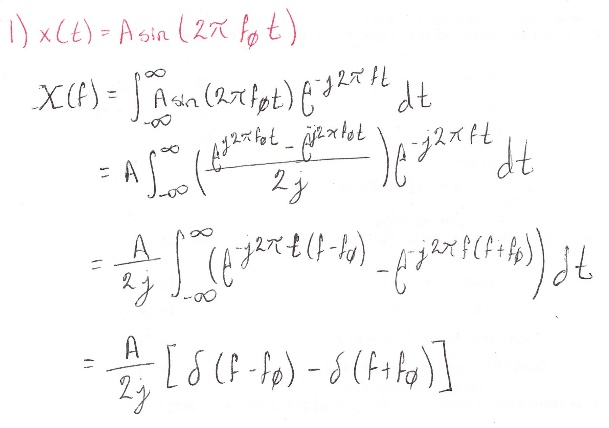 1) x(t) = A sin (2π f∅ t)
X(f) = ∫_{-∞}^{∞} A sin (2π f∅ t) e^{-j2πft} dt
= A ∫_{-∞}^{∞} ( (e^{j2πf∅t} - e^{-j2πf∅t}) / 2j ) e^{-j2πft} dt
= A/2j ∫_{-∞}^{∞} (e^{-j2πt(f-f∅)} - e^{-j2πf(f+f∅)}) dt
= A/2j [δ(f-f∅) - δ(f+f∅)]